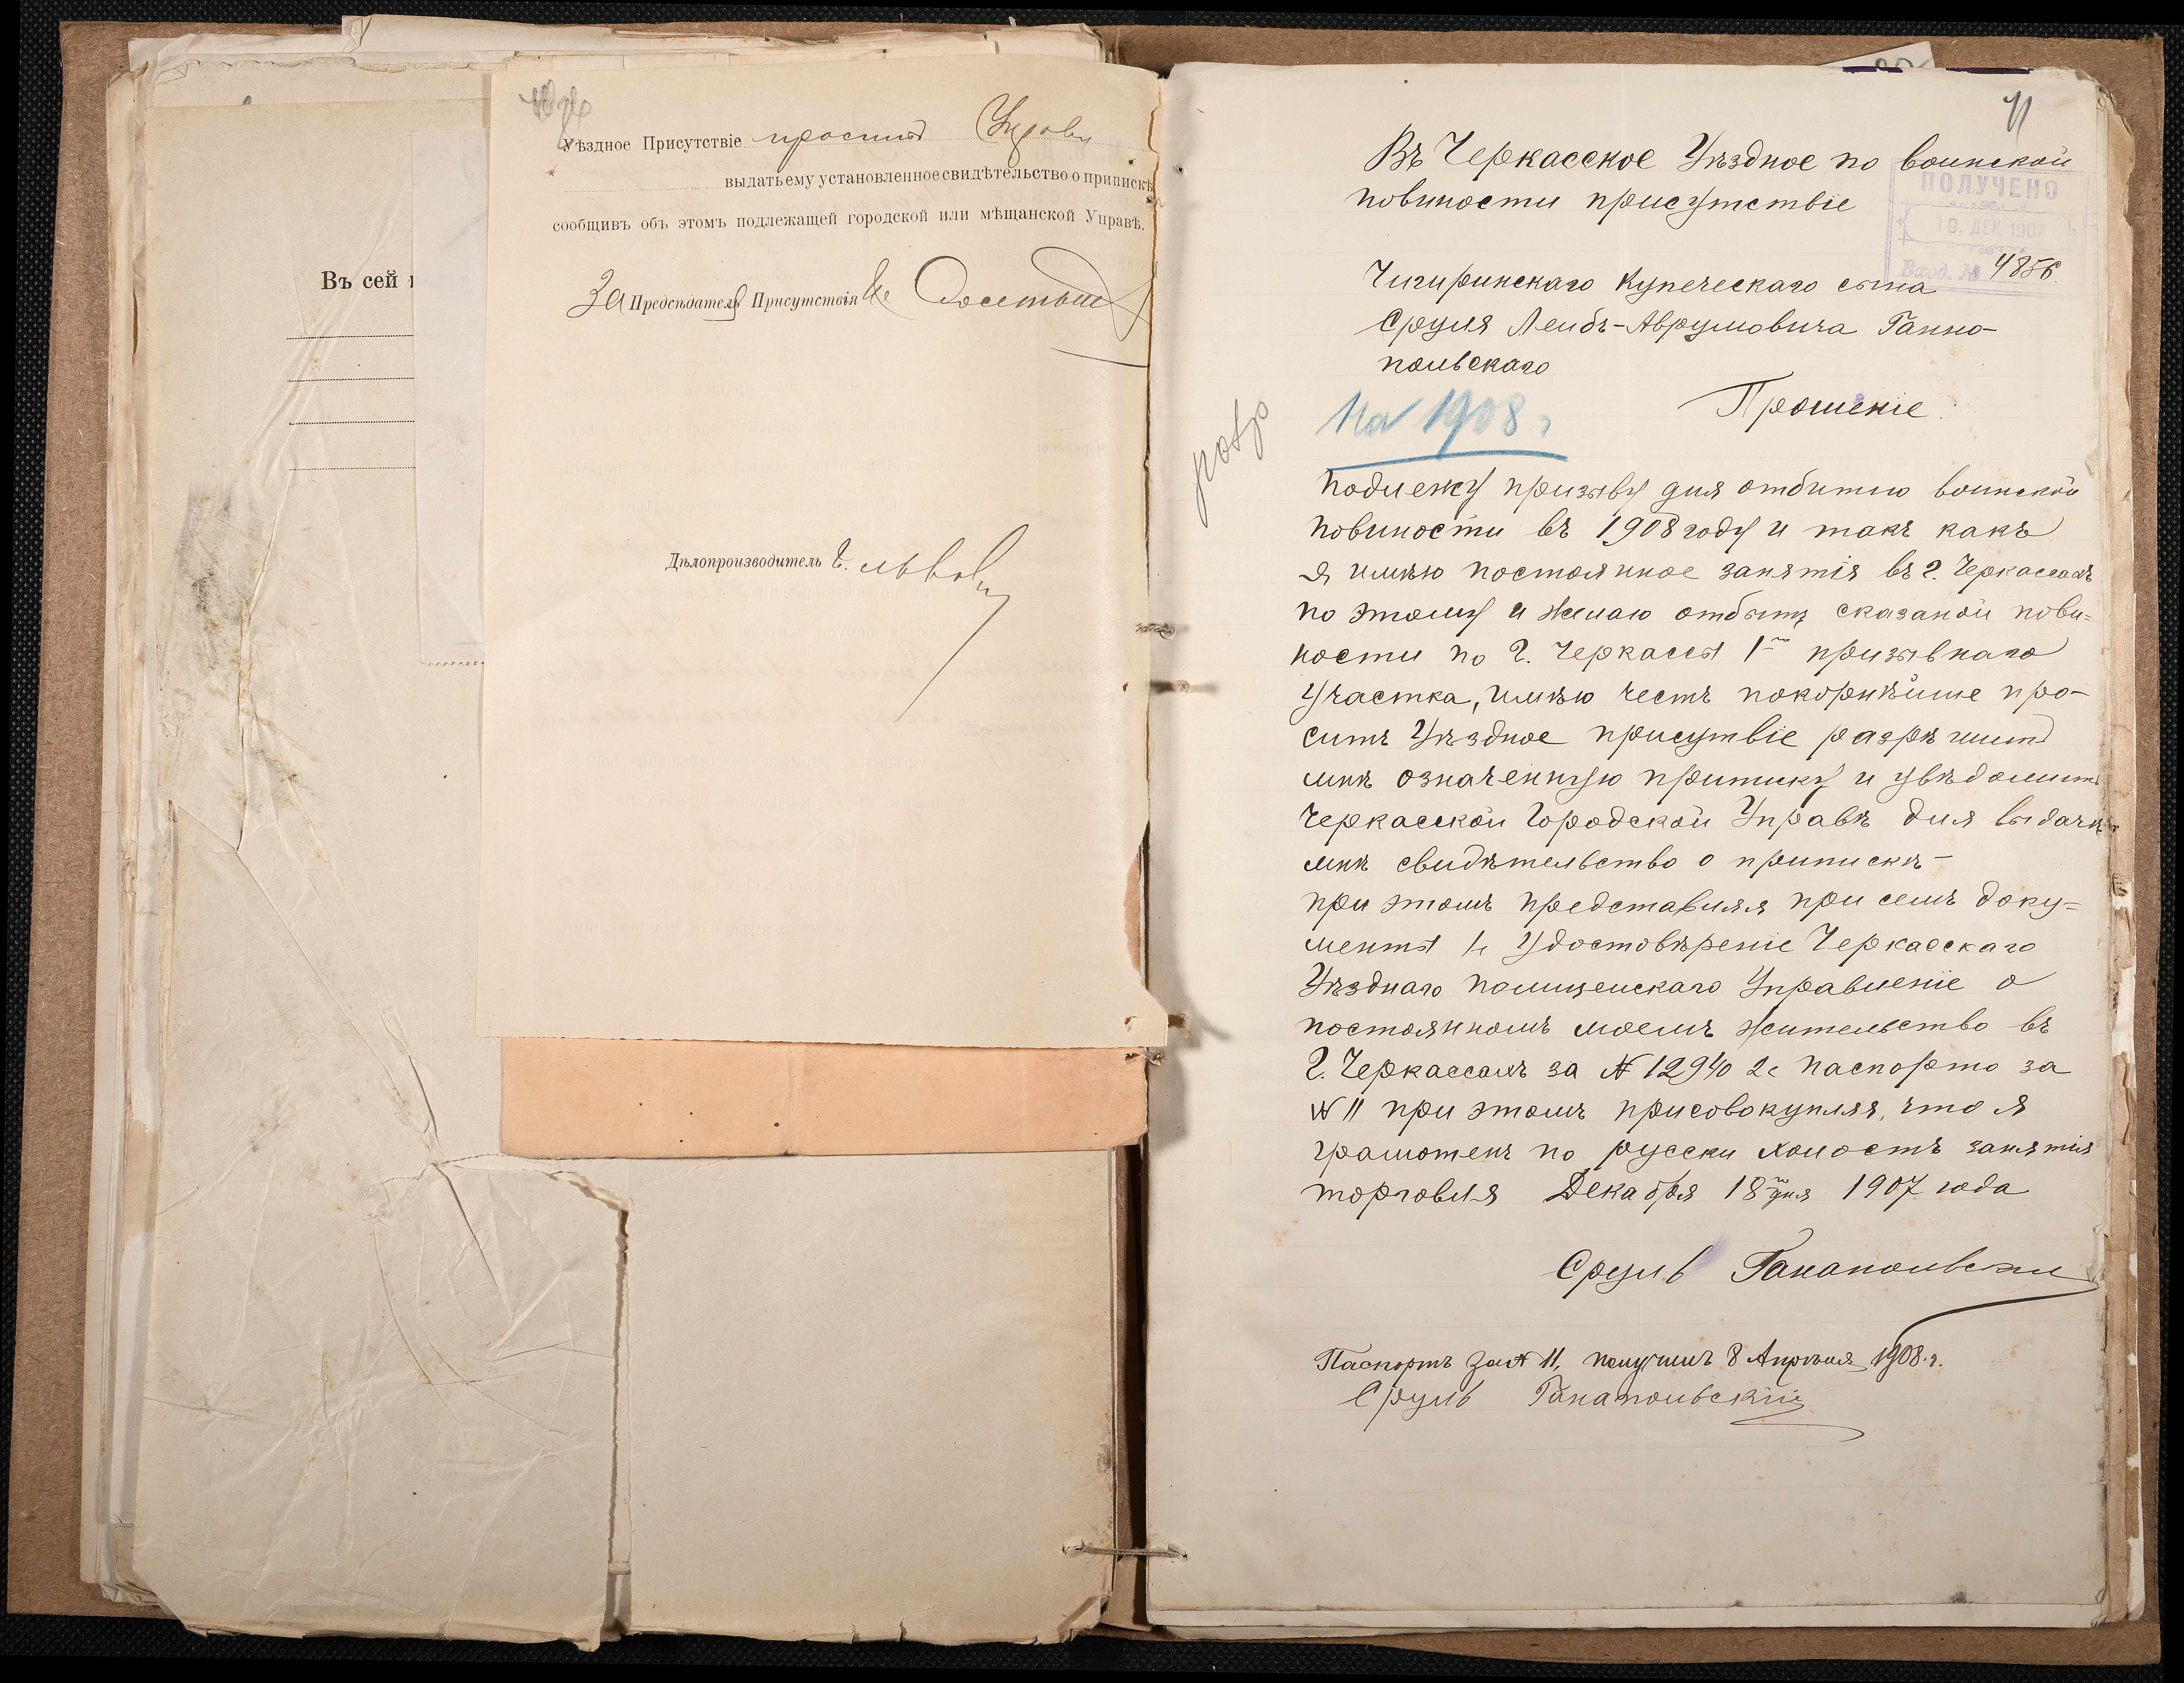 Въ сей
Уѣздное Присутствіе проситъ Управу
выдать ему установленное свидѣтельство о припискѣ
сообщивъ объ этомъ подлежащей городской или мѣщанской Управѣ.
За Предсѣдателя Присутствія
Дѣлопроизводитель
11
Въ Черкасское Уѣздное по воинской
повиности присутствіе
ПОЛУЧЕНО
19. ДЕК 1907
Вход. № 4856
Чигиринскаго Купеческаго сына
Сруля Лейбъ-Аврумовича Ганно-
польскаго
Прошеніе.
На 1908 г
Подлежу призыву для отбытію воинской
повиности въ 1908 году и такъ какъ
я имѣю постоянное занятія въ г. Черкассахъ
по этому и желаю отбыть сказаной пови=
ности по г. Черкассы 1го призывнаго
участка, имѣю честь покорнѣйше про-
сить Уѣздное присутвіе разрѣшить
мнѣ означенную приписку и увѣдомить
Черкасской Городской Управѣ для выдачи
мнѣ свидѣтельство о припискѣ-
при этомъ представляя при семъ доку=
менты 1е Удостовѣреніе Черкасскаго
Уѣзднаго Полицейскаго Управленіе о
постоянномъ моемъ жительство въ
г. Черкассахъ за № 12940 2е паспорто за
№ 11 при этомъ присовокупляя, что я
грамотенъ по русски холостъ занятія
торговля Декабря 18го дня 1907 года
Сруль Ганапольски
Паспортъ за № 11, получилъ 8 Апрѣля 1908 г.
Сруль Ганапольскій